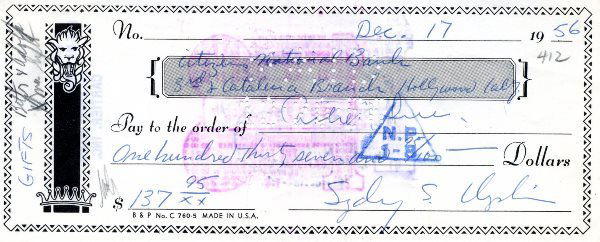 No. Dec. 17 19 56
412
Citizens National Bank
3rd & Catalina Branch, Hollywood Calif
Pay to the order of
N.P.
1-8
One hundred thirty seven and 95/100 Dollars
$ 137 95/xx Sydney S.
B & P No. C 760-5 MADE IN U.S.A.
GIFTS